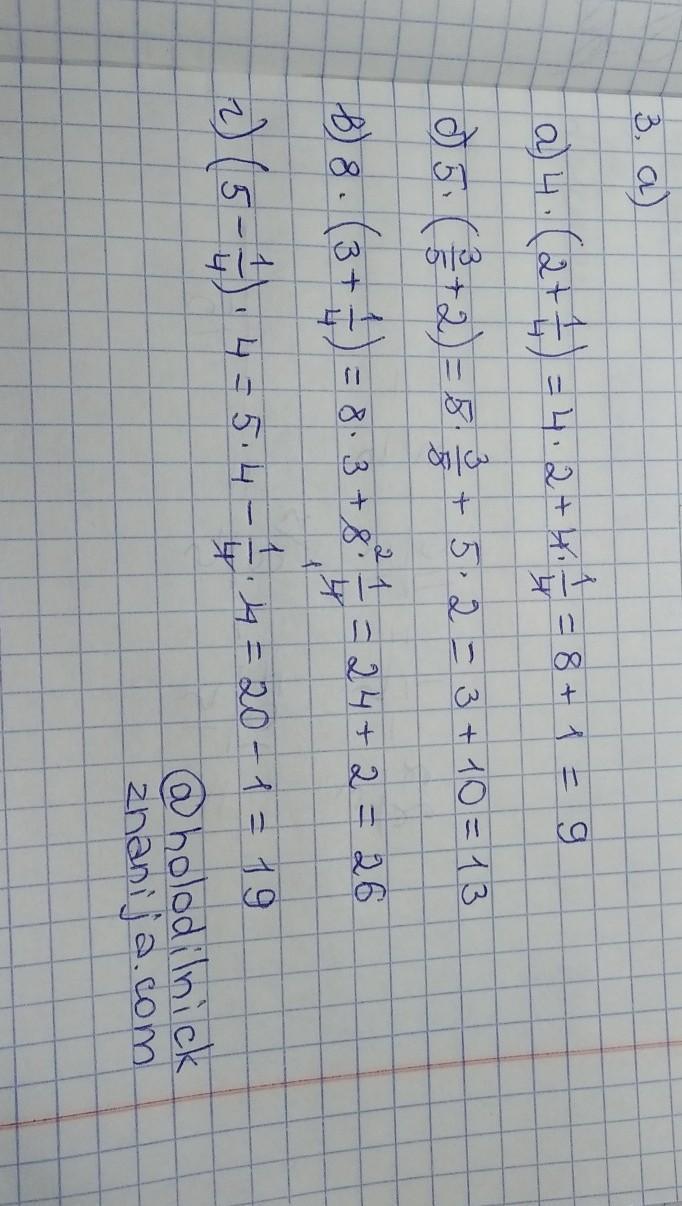 3. а)
а) 4 · (2 + 1/4) = 4 · 2 + 4 · 1/4 = 8 + 1 = 9
б) 5 · (3/5 + 2) = 5 · 3/5 + 5 · 2 = 3 + 10 = 13
в) 8 · (3 + 1/4) = 8 · 3 + 8² · 1/4₁ = 24 + 2 = 26
г) (5 - 1/4) · 4 = 5 · 4 - 1/4 · 4 = 20 - 1 = 19
@holodilnick
znanija.com